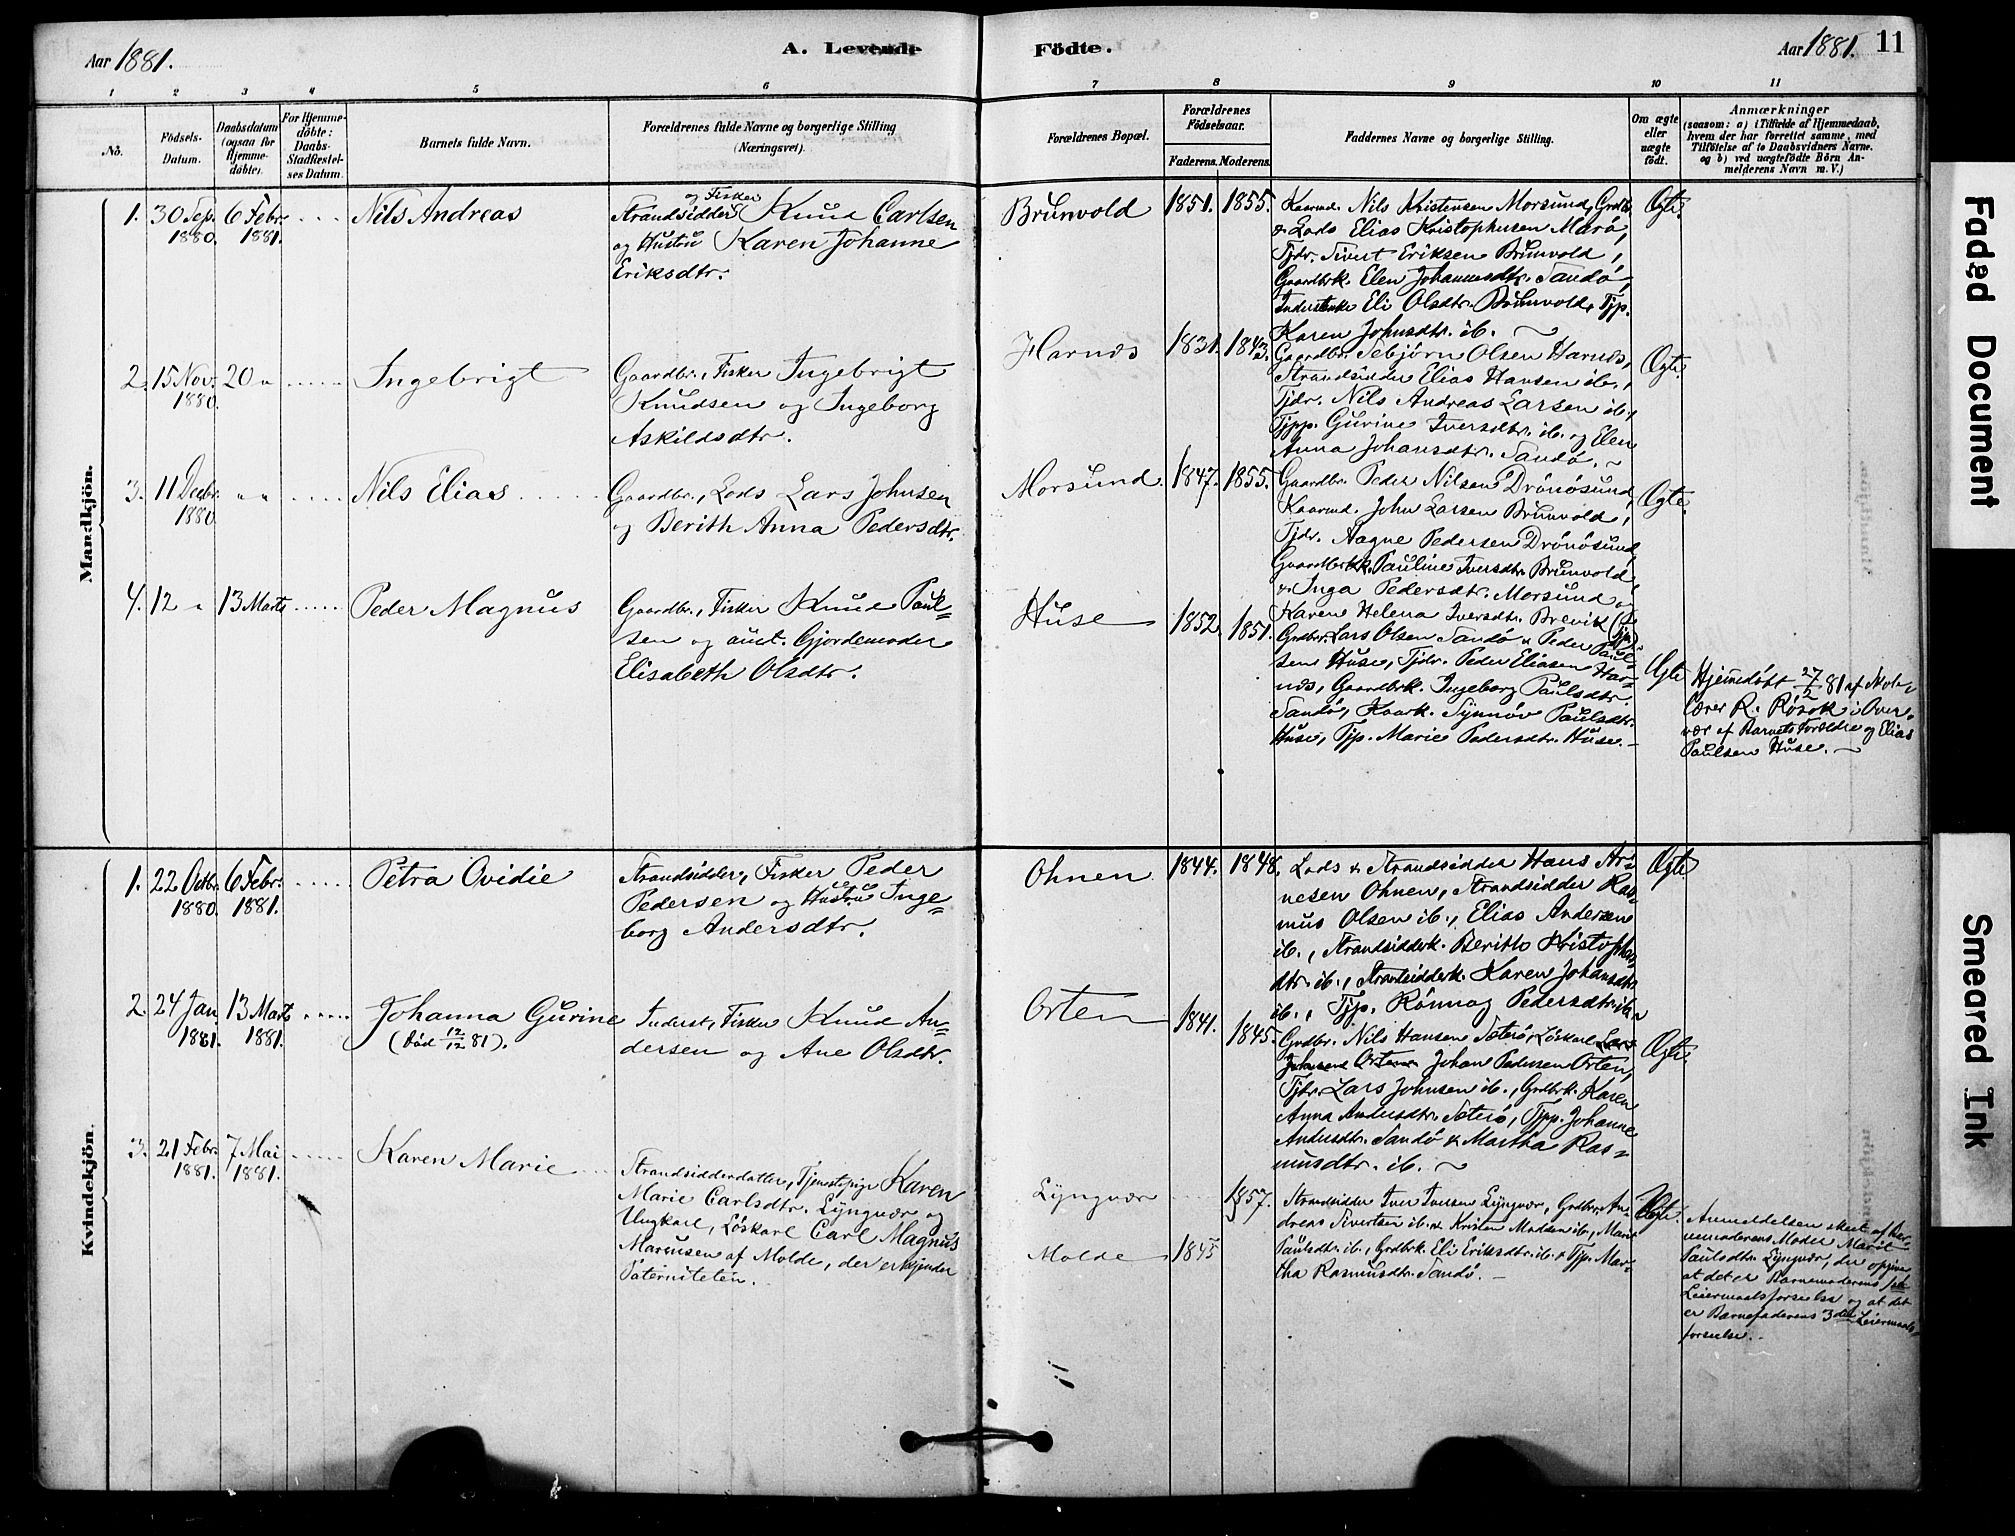 Aar 1881.
A. Levende
Födte.
Aar 1881.
11
1 2 3 4 5 6 7 8 9 10 11
No.
Födsels-
Datum.
Daabsdatum
(ogsaa for
Hjemme-
döbte).
For Hjemme-
döbte:
Daabs-
Stadfæstel-
ses Datum.
Barnets fulde Navn.
Forældrenes fulde Navne og borgerlige Stilling
(Næringsvei).
Forældrenes Bopæl.
Forældrenes
Födselsaar.
Faderens. Moderens.
Faddernes Navne og borgerlige Stilling.
Om ægte
eller
uægte
födt.
Anmærkninger
(saasom: a) i Tilfælde af Hjemmedaab,
hvem der har forrettet samme, med
Tilföielse af to Daabsvidners Navne.
og b) ved uægtefödte Börn An-
melderens Navn m. V.)
Mandkjön.
1. 30 Sep. 1880. 6 Febr. 1881. Nils Andreas
og Fisker
Strandsidder Knud Carlsen
og Hustru Karen Johanne
Eriksdtr.
Brunvold 1851. 1855.
Kaarmd. Nils Kristensen Morsund, Grdbr.
& Lods Elias Kristophersen Marö,
Tjdr. Sivert Eriksen Brunvold,
Gaardbrk. Elen Johannesdtr. Sandö,
Inderstenke Eli Olsdtr. Brunvold, Tjp.
Karen Johnsdtr. ib.
Ægte.
2. 15 Nov. 1880. 20 " Ingebrigt
Gaardbr., Fisker Ingebrigt
Knudsen og Ingeborg
Askildsdtr.
Harnæs 1831. 1843.
Gaardbr. Sebjörn Olsen Harnæs,
Strandsidder Elias Hansen ib.,
Tjdr. Nils Andreas Larsen ib.,
Tjpp. Gurine Iversdtr. ib. og Elen
Anna Johansdtr. Sandö.
Ægte.
3. 11 Decbr. 1880. " " Nils Elias
Gaardbr., Lods Lars Johnsen
og Berith Anna Pedersdtr.
Morsund 1847. 1855.
Gaardbr. Peder Nilsen Drönösund,
Kaarmd. John Larsen Brunvold,
Tjdr. Aagne Pedersen Drönösund,
Gaardbrk. Pauline Iversdtr. Brunvold
& Inga Pedersdtr. Morsund og
Karen Helena Iversdtr. Brevik (Tjp.)
Ægte.
4. 12 " 13 Marts Peder Magnus
Gaardbr., Fisker Knud Paul=
sen og amt. Gjordemoder
Elisabeth Olsdtr.
Huse 1852. 1851.
Grdbr. Lars Olsen Sandö & Peder Paul=
sen Huse, Tjdr. Peder Eliasen Har=
næs, Gaardbrk. Ingeborg Paulsdtr.
Sandö, Kaark. Synnöv Paulsdtr.
Huse, Tjp. Marie Pedersdtr. Huse.
Ægte
Hjemdöbt 27/2 81 af
Lærer R. Rösok i Over=
vær af Barnets Forældre og Elias
Paulsen Huse.
Kvindekjön.
1. 22 Octbr. 1880. 6 Febr. 1881. Petra Ovidie
Strandsidder, Fisker Peder
Pedersen og Hustru Inge=
borg Andersdtr.
Ohnen 1844. 1848.
Lods & Strandsidder Hans Ar=
nesen Ohnen, Strandsidder Ras=
mus Olsen ib., Elias Andersen
ib., Strandsidderk. Berith Kristophers
dtr. ib., Strandsidderk. Karen Johansdtr.
ib., Tjp. Rönnog Pedersdtr. ib.
Ægte
2. 24 Jan. 1881. 13 Marts 1881. Johanna Gurine
(död 12/12 81).
Inderst, Fisker Knud An=
dersen og Ane Olsdtr.
Orten 1841. 1845.
Grdbr. Nils Hansen Sæterö, Löskarl Lars
Johnsens Orten Johan Pedersen Orten,
Tjdr. Lars Johnsen ib., Grdbrk. Karen
Anna Andersdtr. Sæterö, Tjpp. Johanne
Andersdtr. Sandö & Martha Ras=
musdtr. ib.
Ægte.
3. 21 Febr. 1881. 7 Mai 1881. Karen Marie
Strandsidderdatter, Tjenestepige Karen
Marie Carlsdtr. Lyngvær og
Ungkarl, Löskarl Carl Magnus
Mareusen af Molde, der erkjender
Paterniteten.
Lyngvær 1857.
Molde 1845
Strandsidder Iver Iversen Lyngvær, Grdbr. An=
dreas Sivertsen ib. & Kristen Madsen ib., Marit
Paulsdtr. ib., Grdbrk. Eli Eriksdtr. ib. & Tjp. Mar=
tha Rasmusdtr. Sandö.
Anmeldelsen skeet af Bar=
nemoderens Moder Marit
Paulsdtr. Lyngvær, der opgiver
at det er Barnemoderens
Leiermaalsforseelse og at det
er Barnefaderens 3die Leiermaals=
forseelse.
Faded Document
Smeared Ink